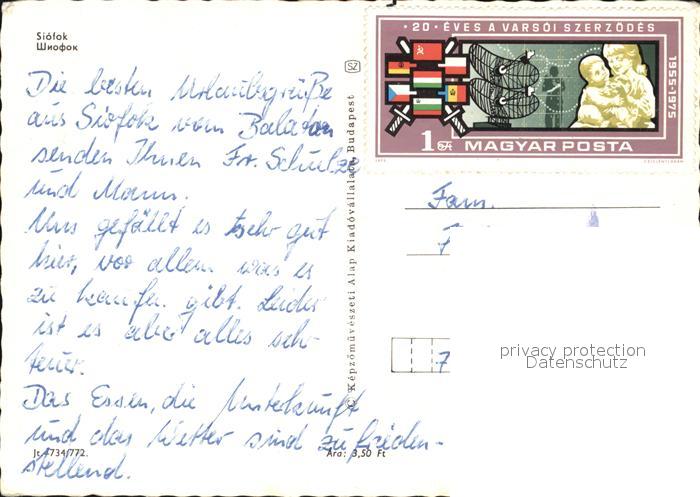 Siófok
Шиофок
Die besten Urlaubsgrüße
aus Siofok vom Balaton
senden Ihnen Fr. Schulze
und Mann.
Uns gefällt es sehr gut
hier, vor allem was es
zu kaufen gibt. Leider
ist es aber alles sehr
teuer.
Das Essen, die Unterkunft
und das Wetter sind zufrieden-
stellend.
Jt 4734/772.
Ára: 3,50 Ft
© Képzőművészeti Alap Kiadóvállalata, Budapest
SZ
• 20 • ÉVES A VARSÓI SZERZŐDÉS
1955-1975
1 Ft
MAGYAR POSTA
1975
Fam.
7
privacy protection
Datenschutz